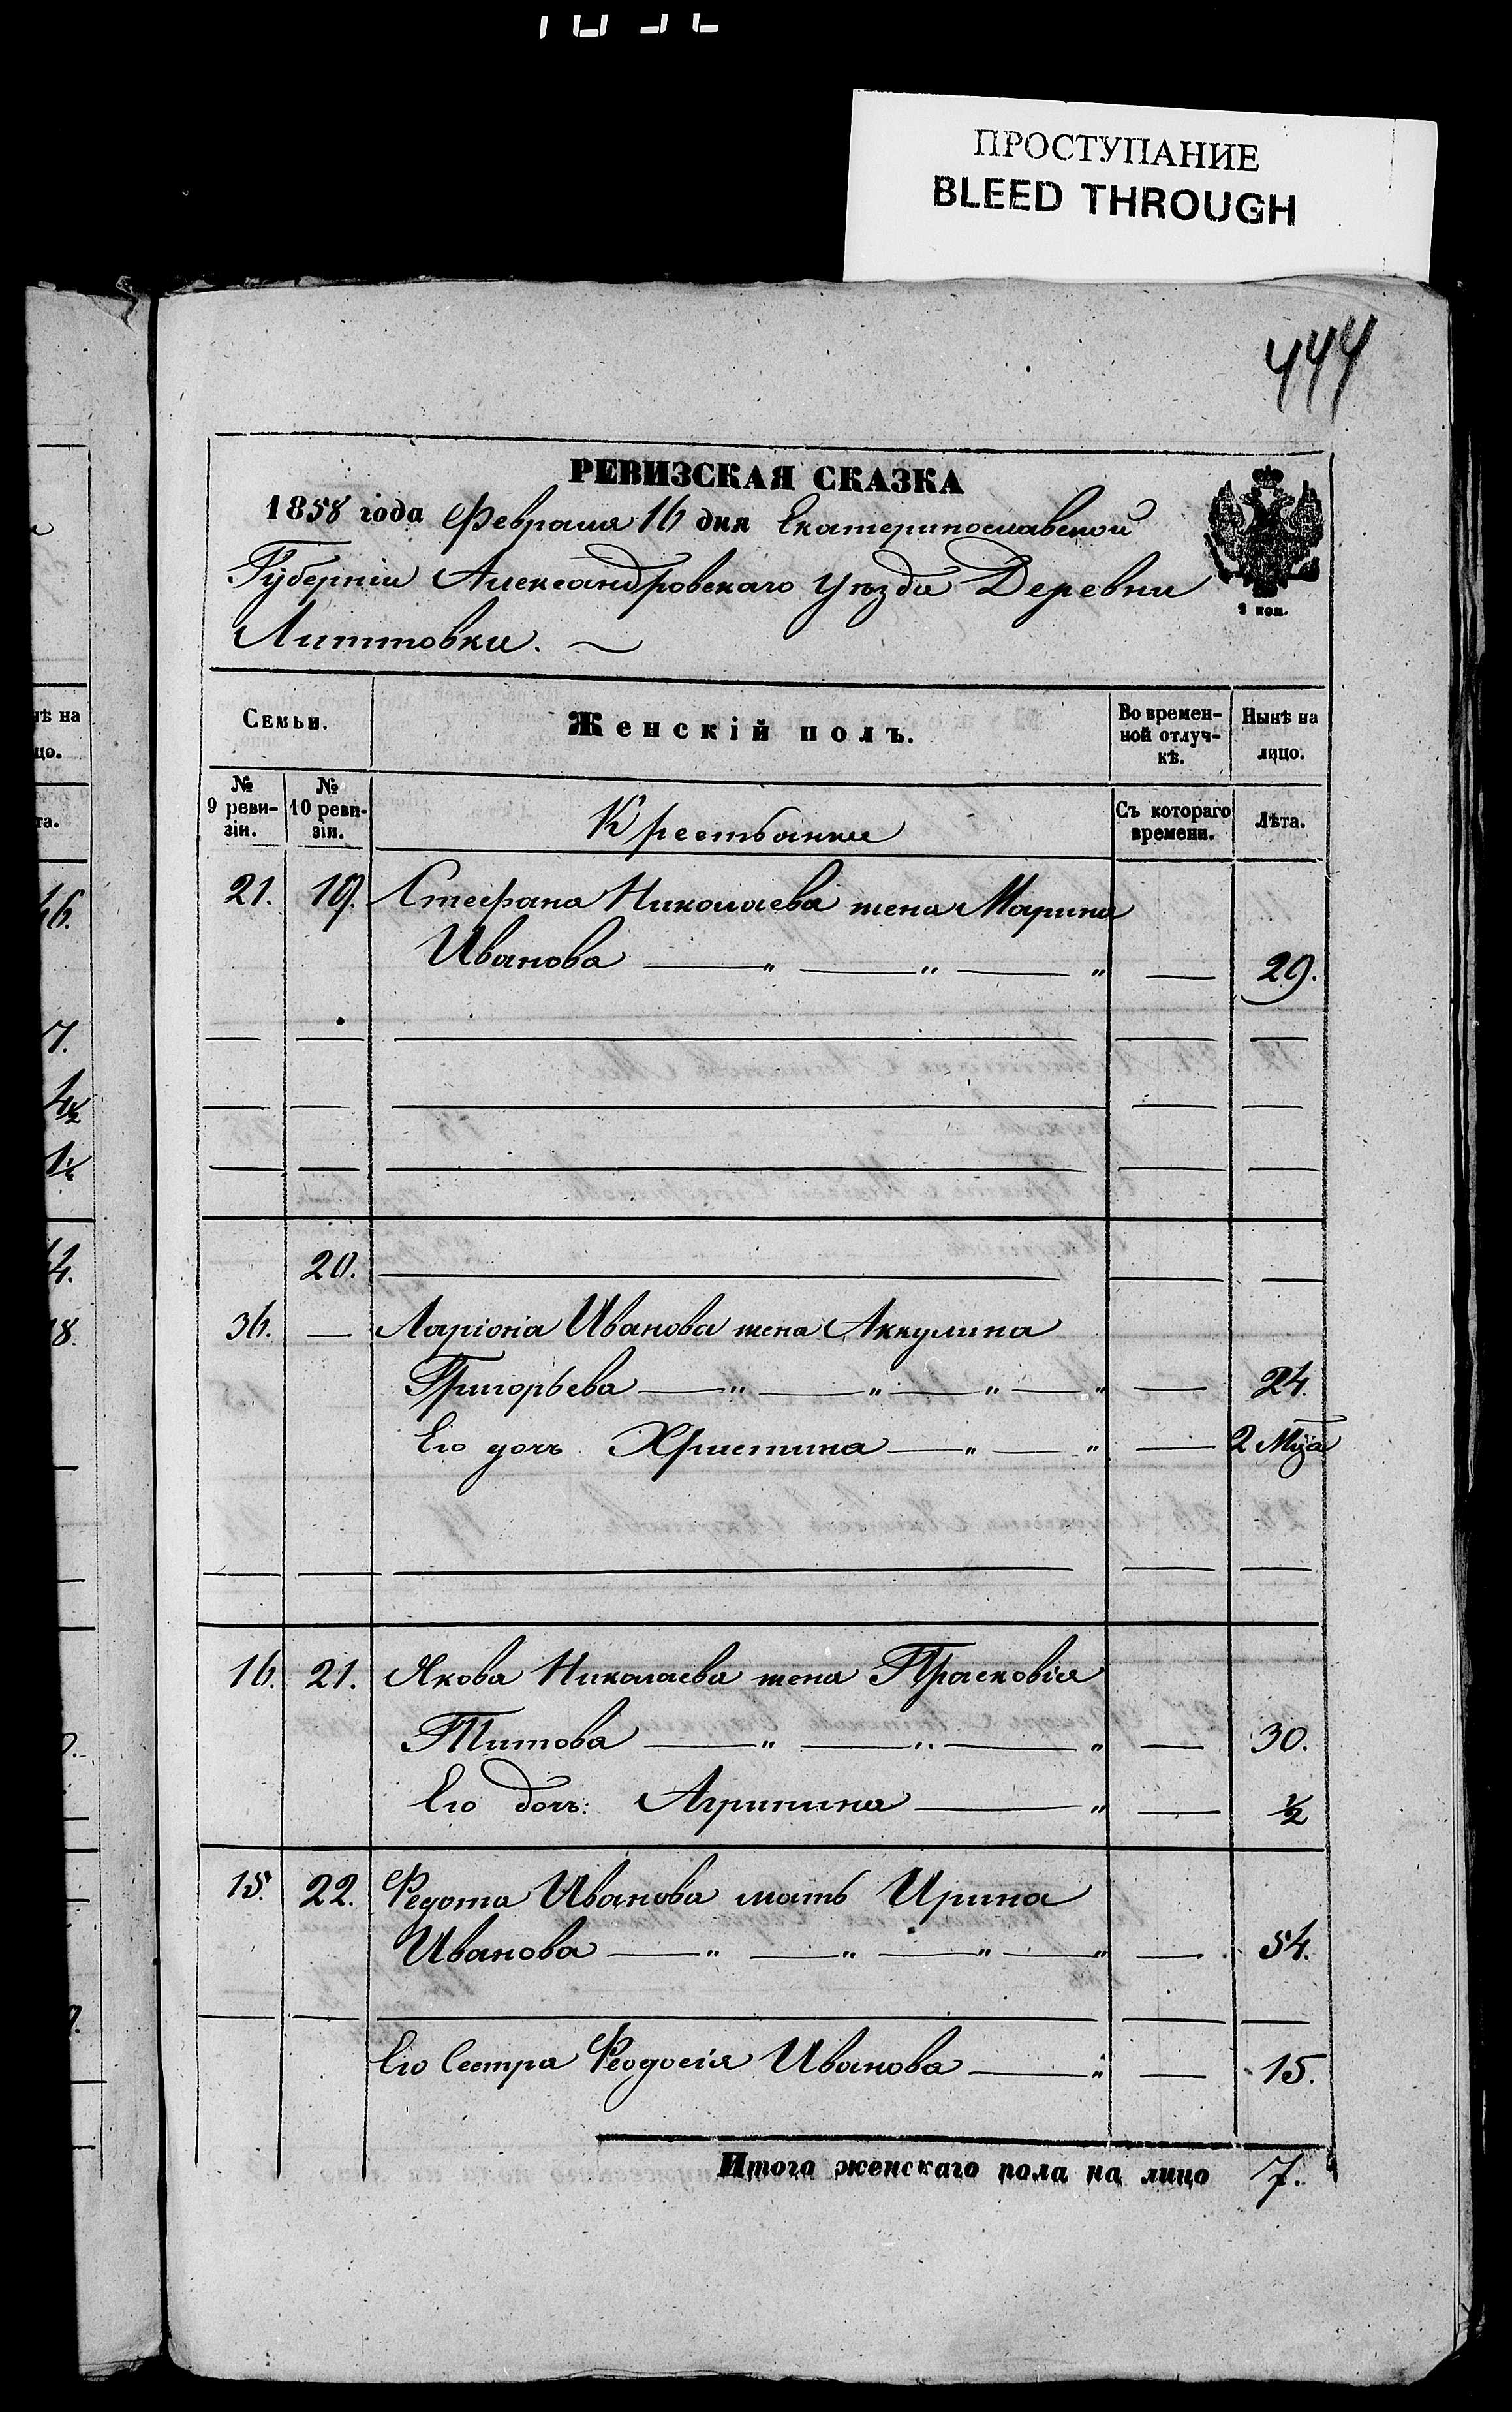 ПРОСТУПАНИЕ
BLEED THROUGH
444
РЕВИЗСКАЯ СКАЗКА
1858 года Февраля 16 дня Екатеринославской
Губерніи Александровскаго Уѣзда Деревни
Литтовки.
2 коп.
Семьи. Женскій полъ. Во времен-ной отлуч-кѣ. Нынѣ на лицо.
№ 9 реви-зіи. № 10 реви-зіи. Крестьянки Съ котораго времени. Лѣта.
21. 19. Стефана Николаева жена Марина
Иванова — „ — „ — „ — 29.
20.
36. — Ларіона Иванова жена Аккулина
Григорьева — „ — „ — „ — „ — 24.
Его дочь Христина — „ — „ — 2 Мца
16. 21. Якова Николаева жена Прасковія
Титова — „ — „ — „ — 30.
Его дочь: Агрипина — „ — ½
15. 22. Федота Иванова мать Ирина
Иванова — „ — „ — „ — „ — 54.
Его Сестра Феодосія Иванова — „ — 15.
Итого женскаго пола на лицо 7.